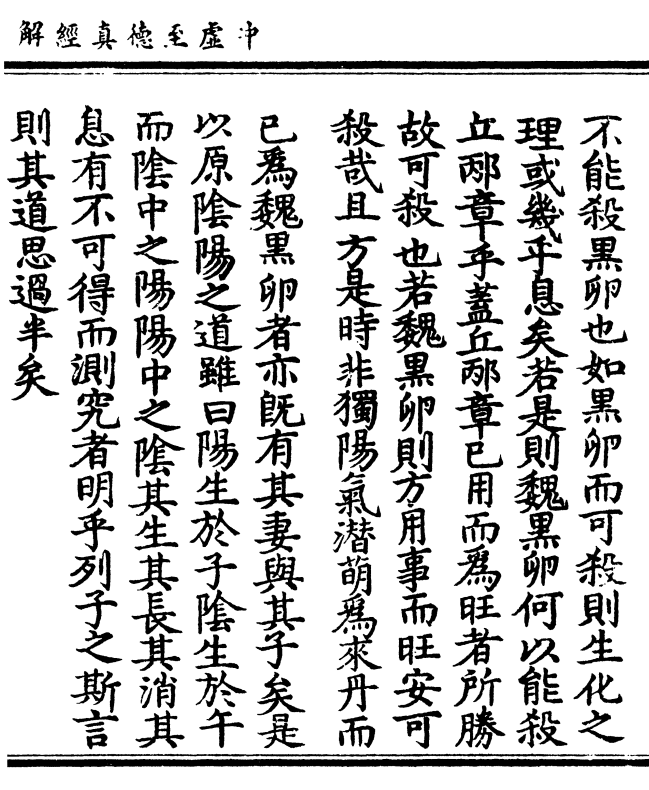 冲虛至德真經解
不能殺黒卵也如黒卵而可殺則生化之
理或幾乎息矣若是則魏黒卵何以能殺
丘邴章乎蓋丘邴章已用而爲旺者所勝
故可殺也若魏黒卵則方用事而旺安可
殺哉且方是時非獨陽氣潜萌爲來丹而
已爲魏黒卵者亦旣有其妻與其子矣是
以原陰陽之道雖曰陽生於子陰生於午
而陰中之陽陽中之陰其生其長其消其
息有不可得而測究者明乎列子之斯言
則其道思過半矣